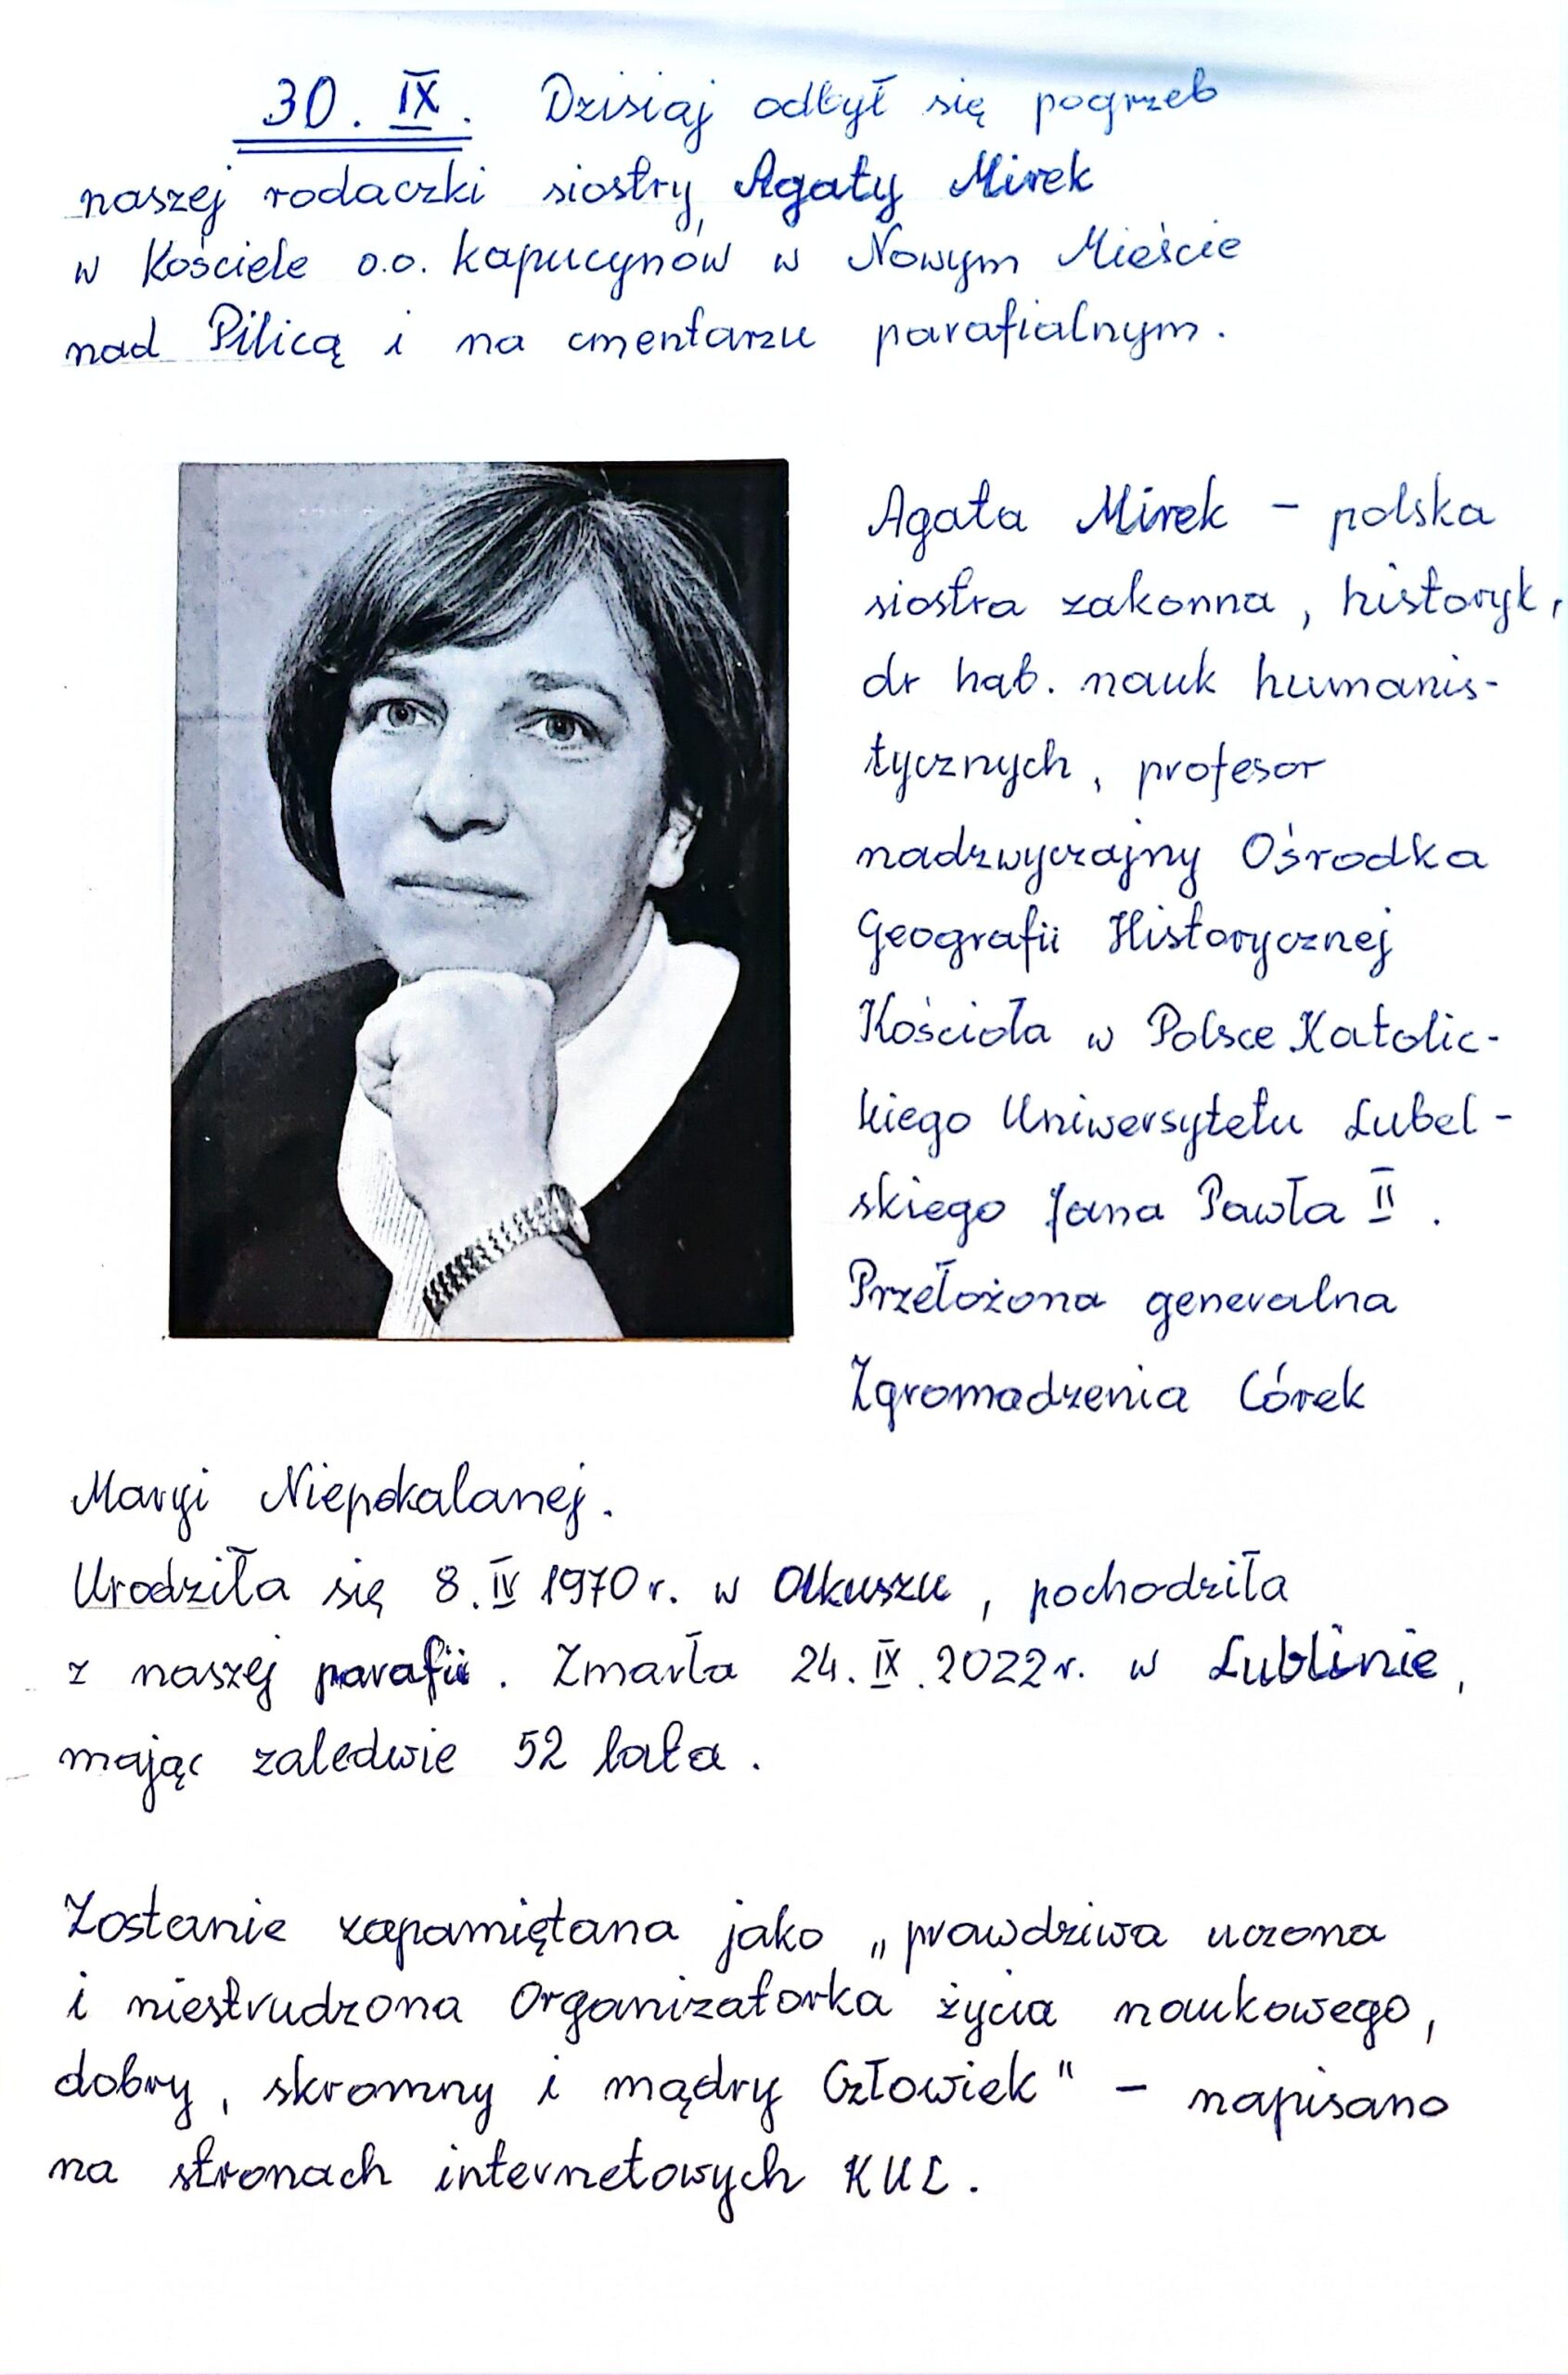 30. IX. Dzisiaj odbył się pogrzeb
naszej rodaczki siostry Agaty Mirek
w Kościele o.o. kapucynów w Nowym Mieście
nad Pilicą i na cmentarzu parafialnym.
Agata Mirek – polska
siostra zakonna, historyk,
dr hab. nauk humanis-
tycznych, profesor
nadzwyczajny Ośrodka
Geografii Historycznej
Kościoła w Polsce Katolic-
kiego Uniwersytetu Lubel-
skiego Jana Pawła II.
Przełożona generalna
Zgromadzenia Córek
Maryi Niepokalanej.
Urodziła się 8. IV 1970 r. w Olkuszu, pochodziła
z naszej parafii. Zmarła 24. IX. 2022 r. w Lublinie,
mając zaledwie 52 lata.
Zostanie zapamiętana jako „prawdziwa uczona
i niestrudzona Organizatorka życia naukowego,
dobry, skromny i mądry Człowiek" – napisano
na stronach internetowych KUL.